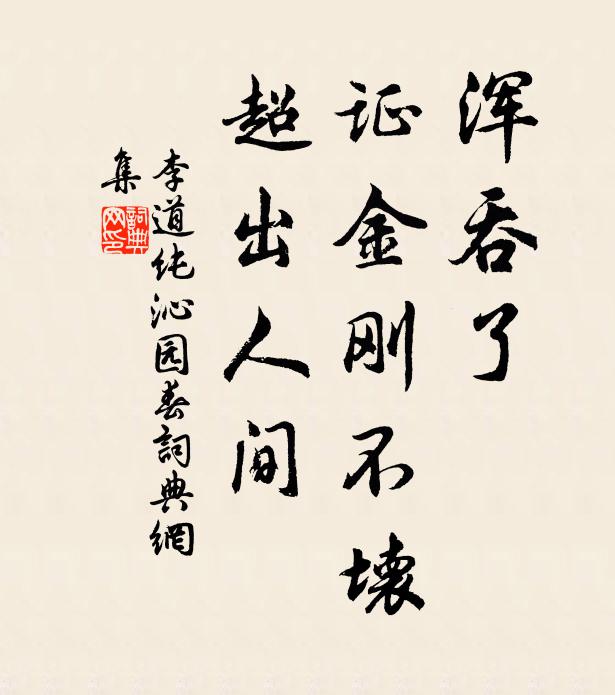 浑吞了
证金刚不坏
超出人间
李道纯沁园春詞典網
集
詞典
网印